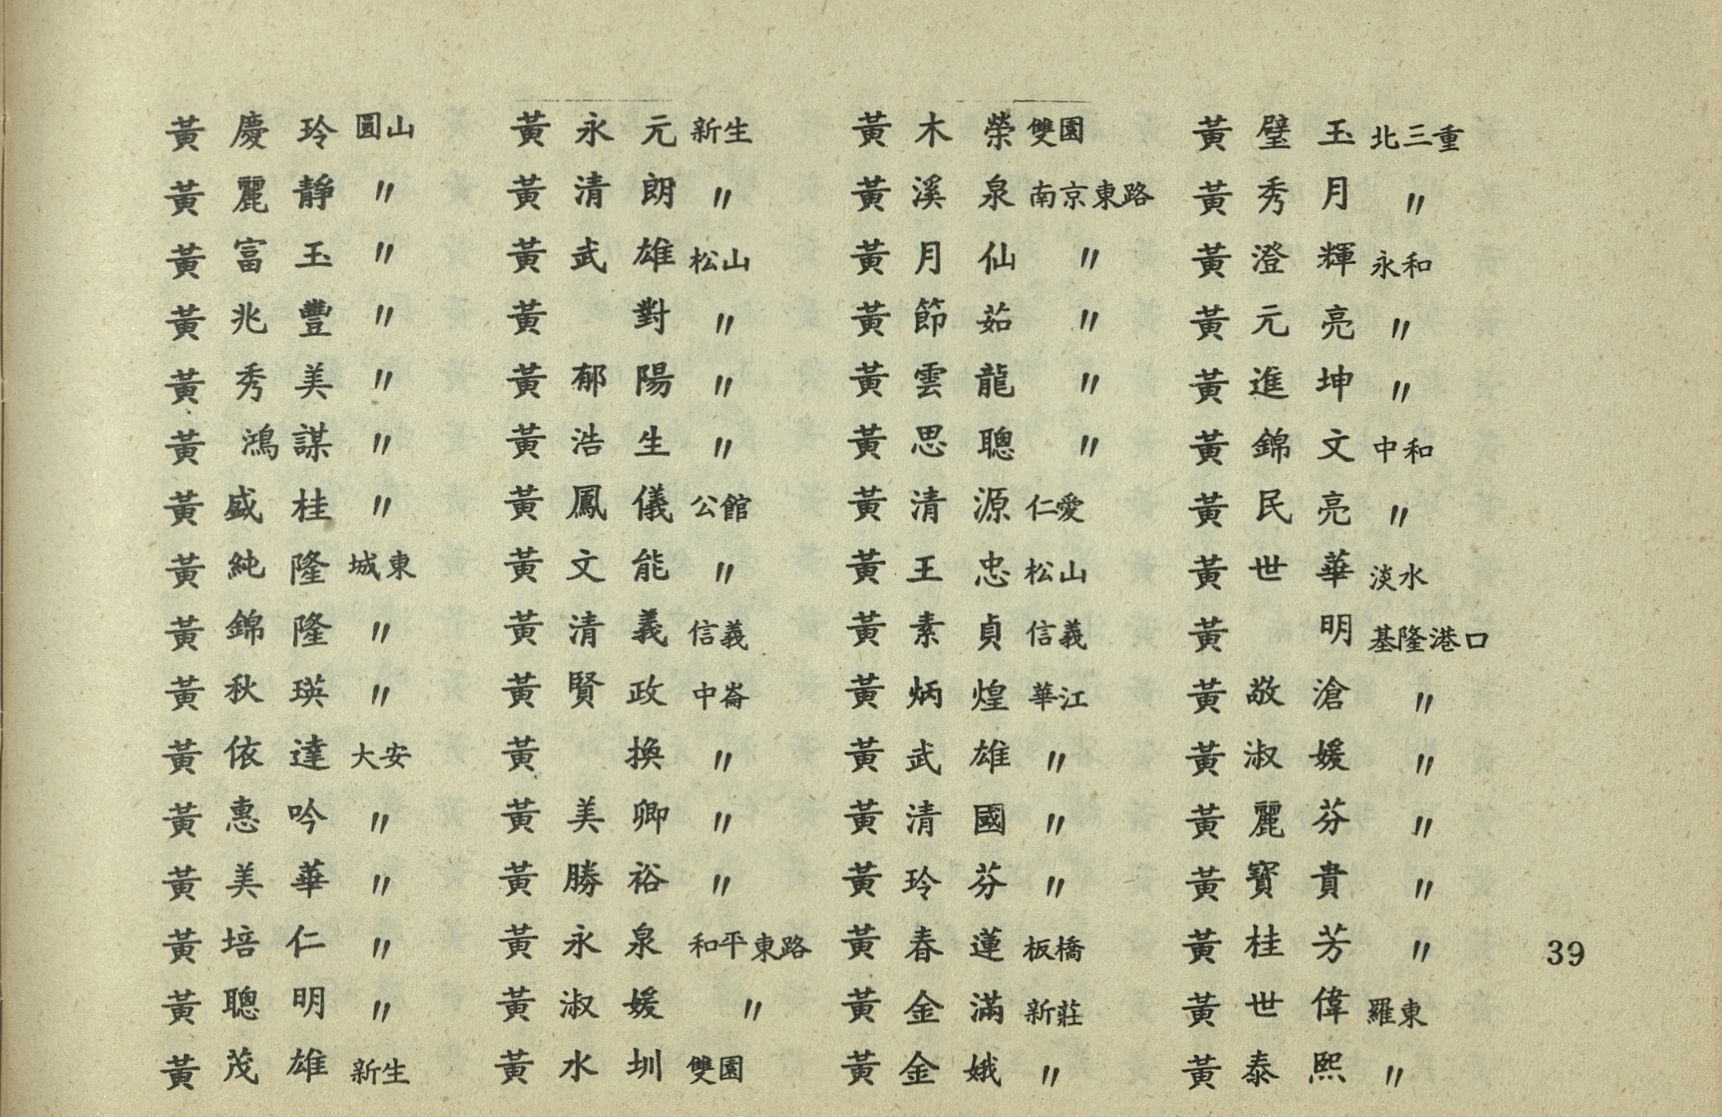 黃慶玲 圓山
黃麗靜 〃
黃富玉 〃
黃兆豐 〃
黃秀美 〃
黃鴻謀 〃
黃盛桂 〃
黃純隆 城東
黃錦隆 〃
黃秋瑛 〃
黃依達 大安
黃惠吟 〃
黃美華 〃
黃培仁 〃
黃聰明 〃
黃茂雄 新生
黃永元 新生
黃清朗 〃
黃武雄 松山
黃對 〃
黃郁陽 〃
黃浩生 〃
黃鳳儀 公館
黃文能 〃
黃清義 信義
黃賢政 中崙
黃換 〃
黃美卿 〃
黃勝裕 〃
黃永泉 和平東路
黃淑媛 〃
黃水圳 雙園
黃木榮 雙園
黃溪泉 南京東路
黃月仙 〃
黃節茹 〃
黃雲龍 〃
黃思聰 〃
黃清源 仁愛
黃王忠 松山
黃素貞 信義
黃炳煌 華江
黃武雄 〃
黃清國 〃
黃玲芬 〃
黃春蓮 板橋
黃金滿 新莊
黃金娥 〃
黃璧玉 北三重
黃秀月 〃
黃澄輝 永和
黃元亮 〃
黃進坤 〃
黃錦文 中和
黃民亮 〃
黃世華 淡水
黃明 基隆港口
黃敬滄 〃
黃淑媛 〃
黃麗芬 〃
黃寶貴 〃
黃桂芳 〃
黃世偉 羅東
黃泰熙 〃
39